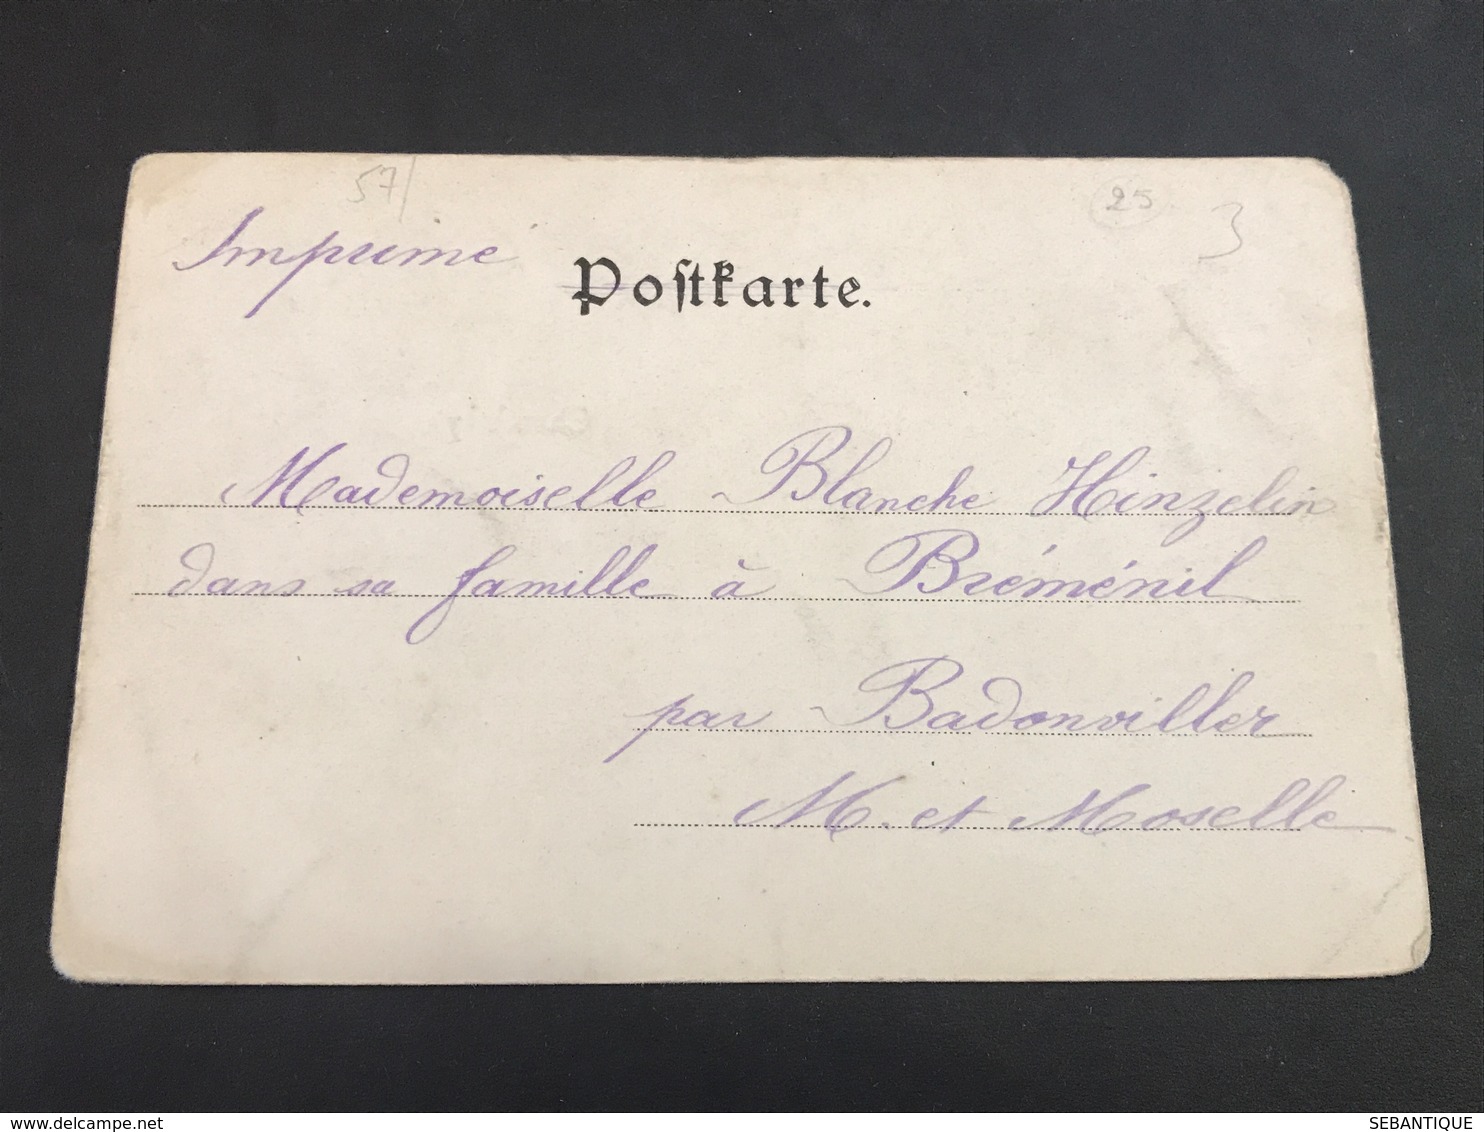 57/
25
3
Imprimé
Poſtkarte.
Mademoiselle Blanche Hinzelin
dans sa famille à Bréménil
par Badonviller
M. et Moselle
www.delcampe.net
SEBANTIQUE